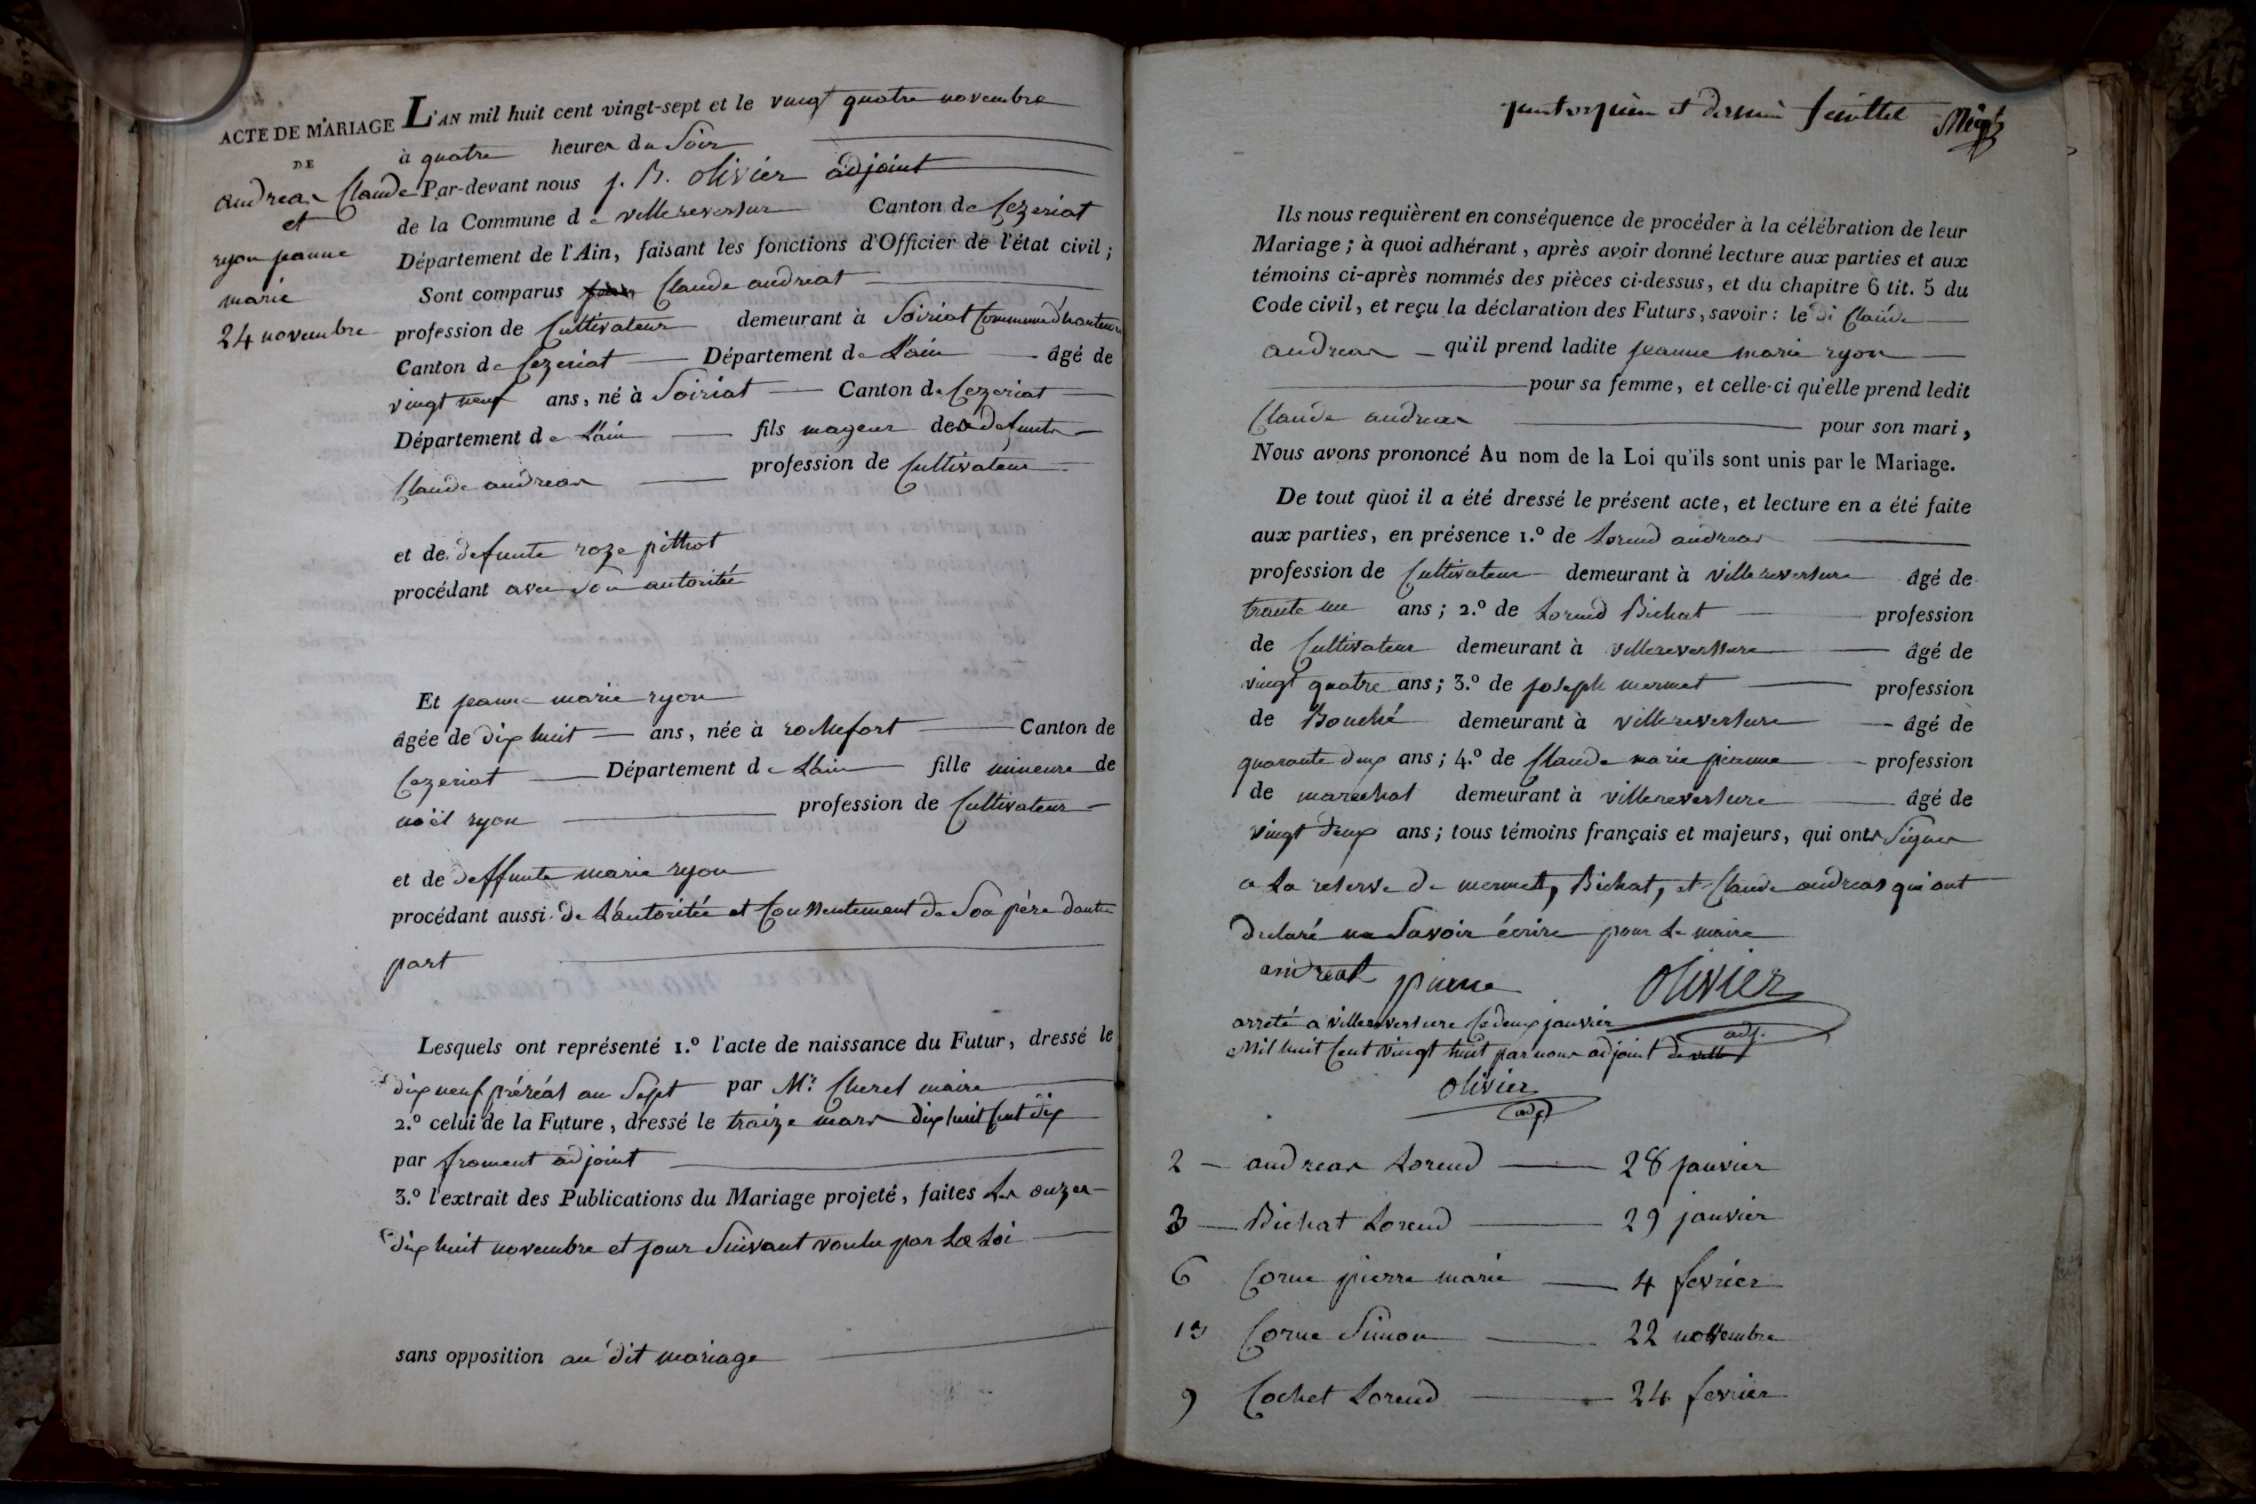 ACTE DE MARIAGE
DE
andreas Claude
et
ryon jeanne
marie
24 novembre
L'AN mil huit cent vingt-sept et le vingt quatre novembre
à quatre heures du Soir
Par-devant nous j. B. olivier adjoint
de la Commune de villereversure Canton de Cezeriat
Département de l'Ain, faisant les fonctions d'Officier de l'état civil;
Sont comparus Claude andreat
profession de Cultivateur demeurant à Soiriat Commune d'hautecour
Canton de Cezeriat Département de L'ain âgé de
vingt neuf ans, né à Soiriat Canton de Cezeriat
Département de L'ain fils mageur de defunts
Claude andreas profession de Cultivateur
et de defunte roze pithot
procédant avec son autoritée
Et jeanne marie ryon
âgée de dix huit ans, née à rochefort Canton de
Cezeriat Département de L'ain fille mineure de
noël ryon profession de Cultivateur
et de deffunte marie ryon
procédant aussi de L'autoritée et Consentement de Son père dautre
part
Lesquels ont représenté 1.º l'acte de naissance du Futur, dressé le
dix neuf préréal an Sept par Mr. Cheret maire
2.º celui de la Future, dressé le traize mars dix huit Cent dix
par froment adjoint
3.º l'extrait des Publications du Mariage projeté, faites Les onzes
dix huit novembre et jour Suivant voulu par La Loi
sans opposition au dit mariage
et dernié feuillet
Ils nous requièrent en conséquence de procéder à la célébration de leur
Mariage; à quoi adhérant, après avoir donné lecture aux parties et aux
témoins ci-après nommés des pièces ci-dessus, et du chapitre 6 tit. 5 du
Code civil, et reçu la déclaration des Futurs, savoir: le di Claude
andreas qu'il prend ladite jeanne marie ryon
pour sa femme, et celle-ci qu'elle prend ledit
Claude andreas pour son mari,
Nous avons prononcé Au nom de la Loi qu'ils sont unis par le Mariage.
De tout quoi il a été dressé le présent acte, et lecture en a été faite
aux parties, en présence 1.º de Lorend andreas
profession de Cultivateur demeurant à villereversure âgé de
trante un ans; 2.º de Lorend Bichat profession
de Cultivateur demeurant à villereversure âgé de
vingt quatre ans; 3.º de joseph mermet profession
de Bouché demeurant à villereversure âgé de
quarante deux ans; 4.º de Claude marie pieanne profession
de marechal demeurant à villereversure âgé de
vingt deux ans; tous témoins français et majeurs, qui onts Signer
a La reserve de mermet, Bichat, et Claude andreas qui ont
declaré ne Savoir écrire pour Le maire
andreat olivier
adj.
arreté a villereversure Le deux janvier
Mil huit Cent vingt huit par nous adjoint de
olivier
adj
2 — andreas Lorend — 28 janvier
3 — Bichat Lorend — 29 janvier
6 Corne pierre marie — 4 fevrier
13 Corne Simon — 22 novembre
9 Cochet Lorend — 24 fevrier